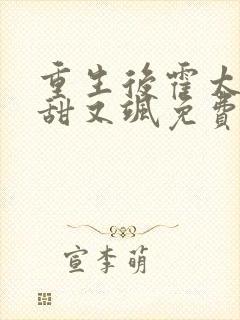 重生后霍太
甜又飒免费
宣李萌